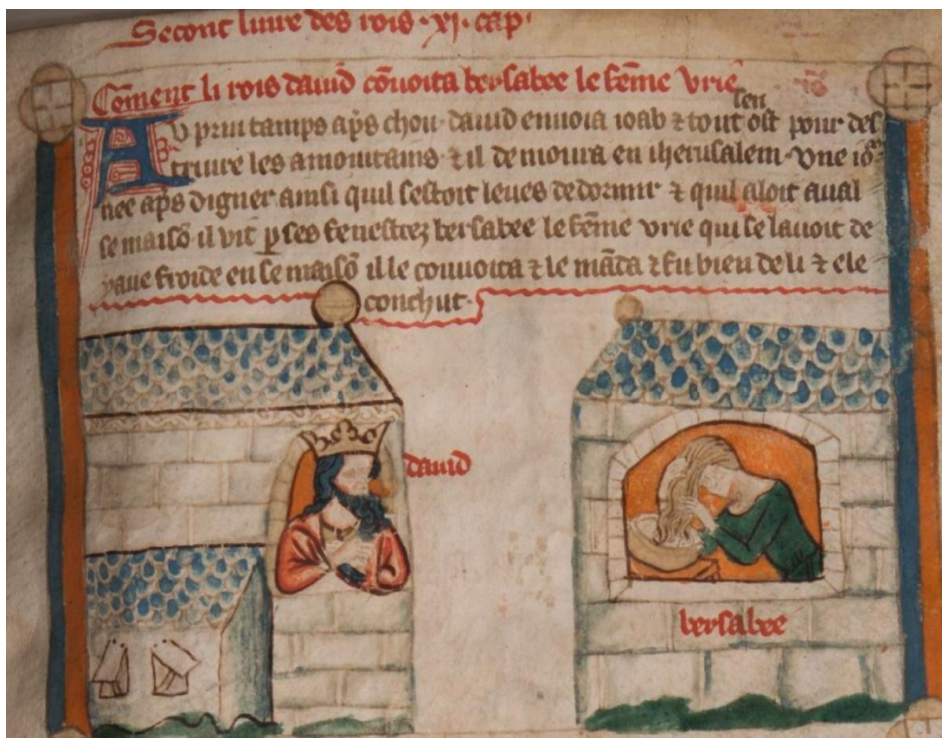 Secont liure des rois · xj · cap'
Cōment li rois dauid cōuoita bersabee le fēme vrie
sen
Au prin tamps ap̄s chou · dauid enuoia ioab ⁊ tout ost pour des
truire les amonitains · ⁊ il demoura en iherusalem · vne io²
nee ap̄s digner ainsi quil sestoit leues de dormir ⁊ quil aloit aual
se maisō il vit ꝑ ses fenestrez bersabee le fēme vrie qui se lauoit de
yaue froide en se maisō il le conuoita ⁊ le māda ⁊ fu bien de li ⁊ ele
conchut ·
dauid
bersabee